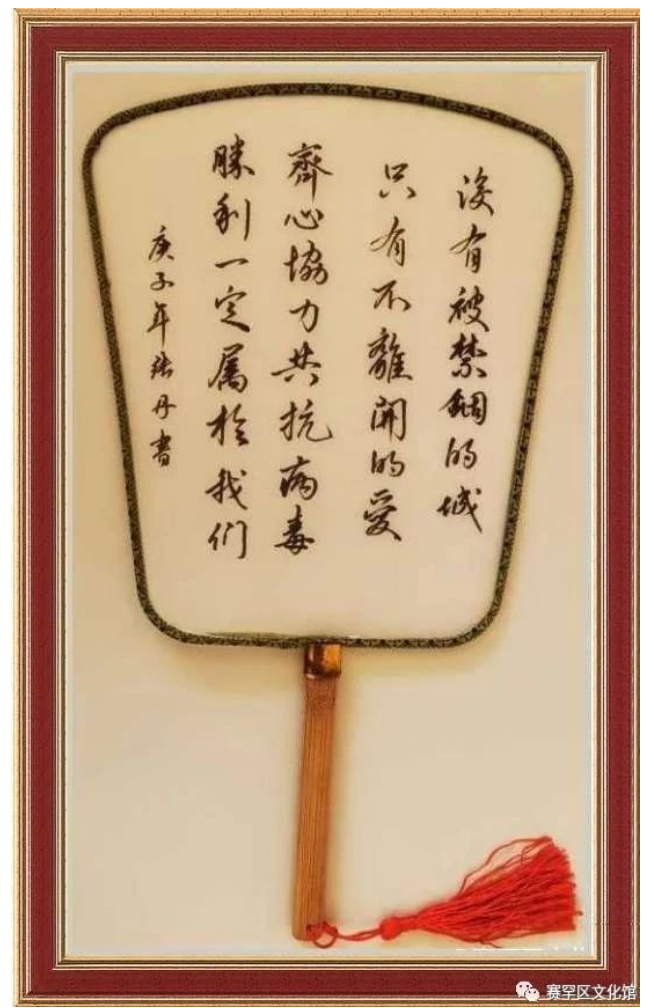 没有被禁錮的城
只有不離開的愛
齊心協力共抗病毒
勝利一定属於我们
庚子年張丹書
赛罕区文化馆